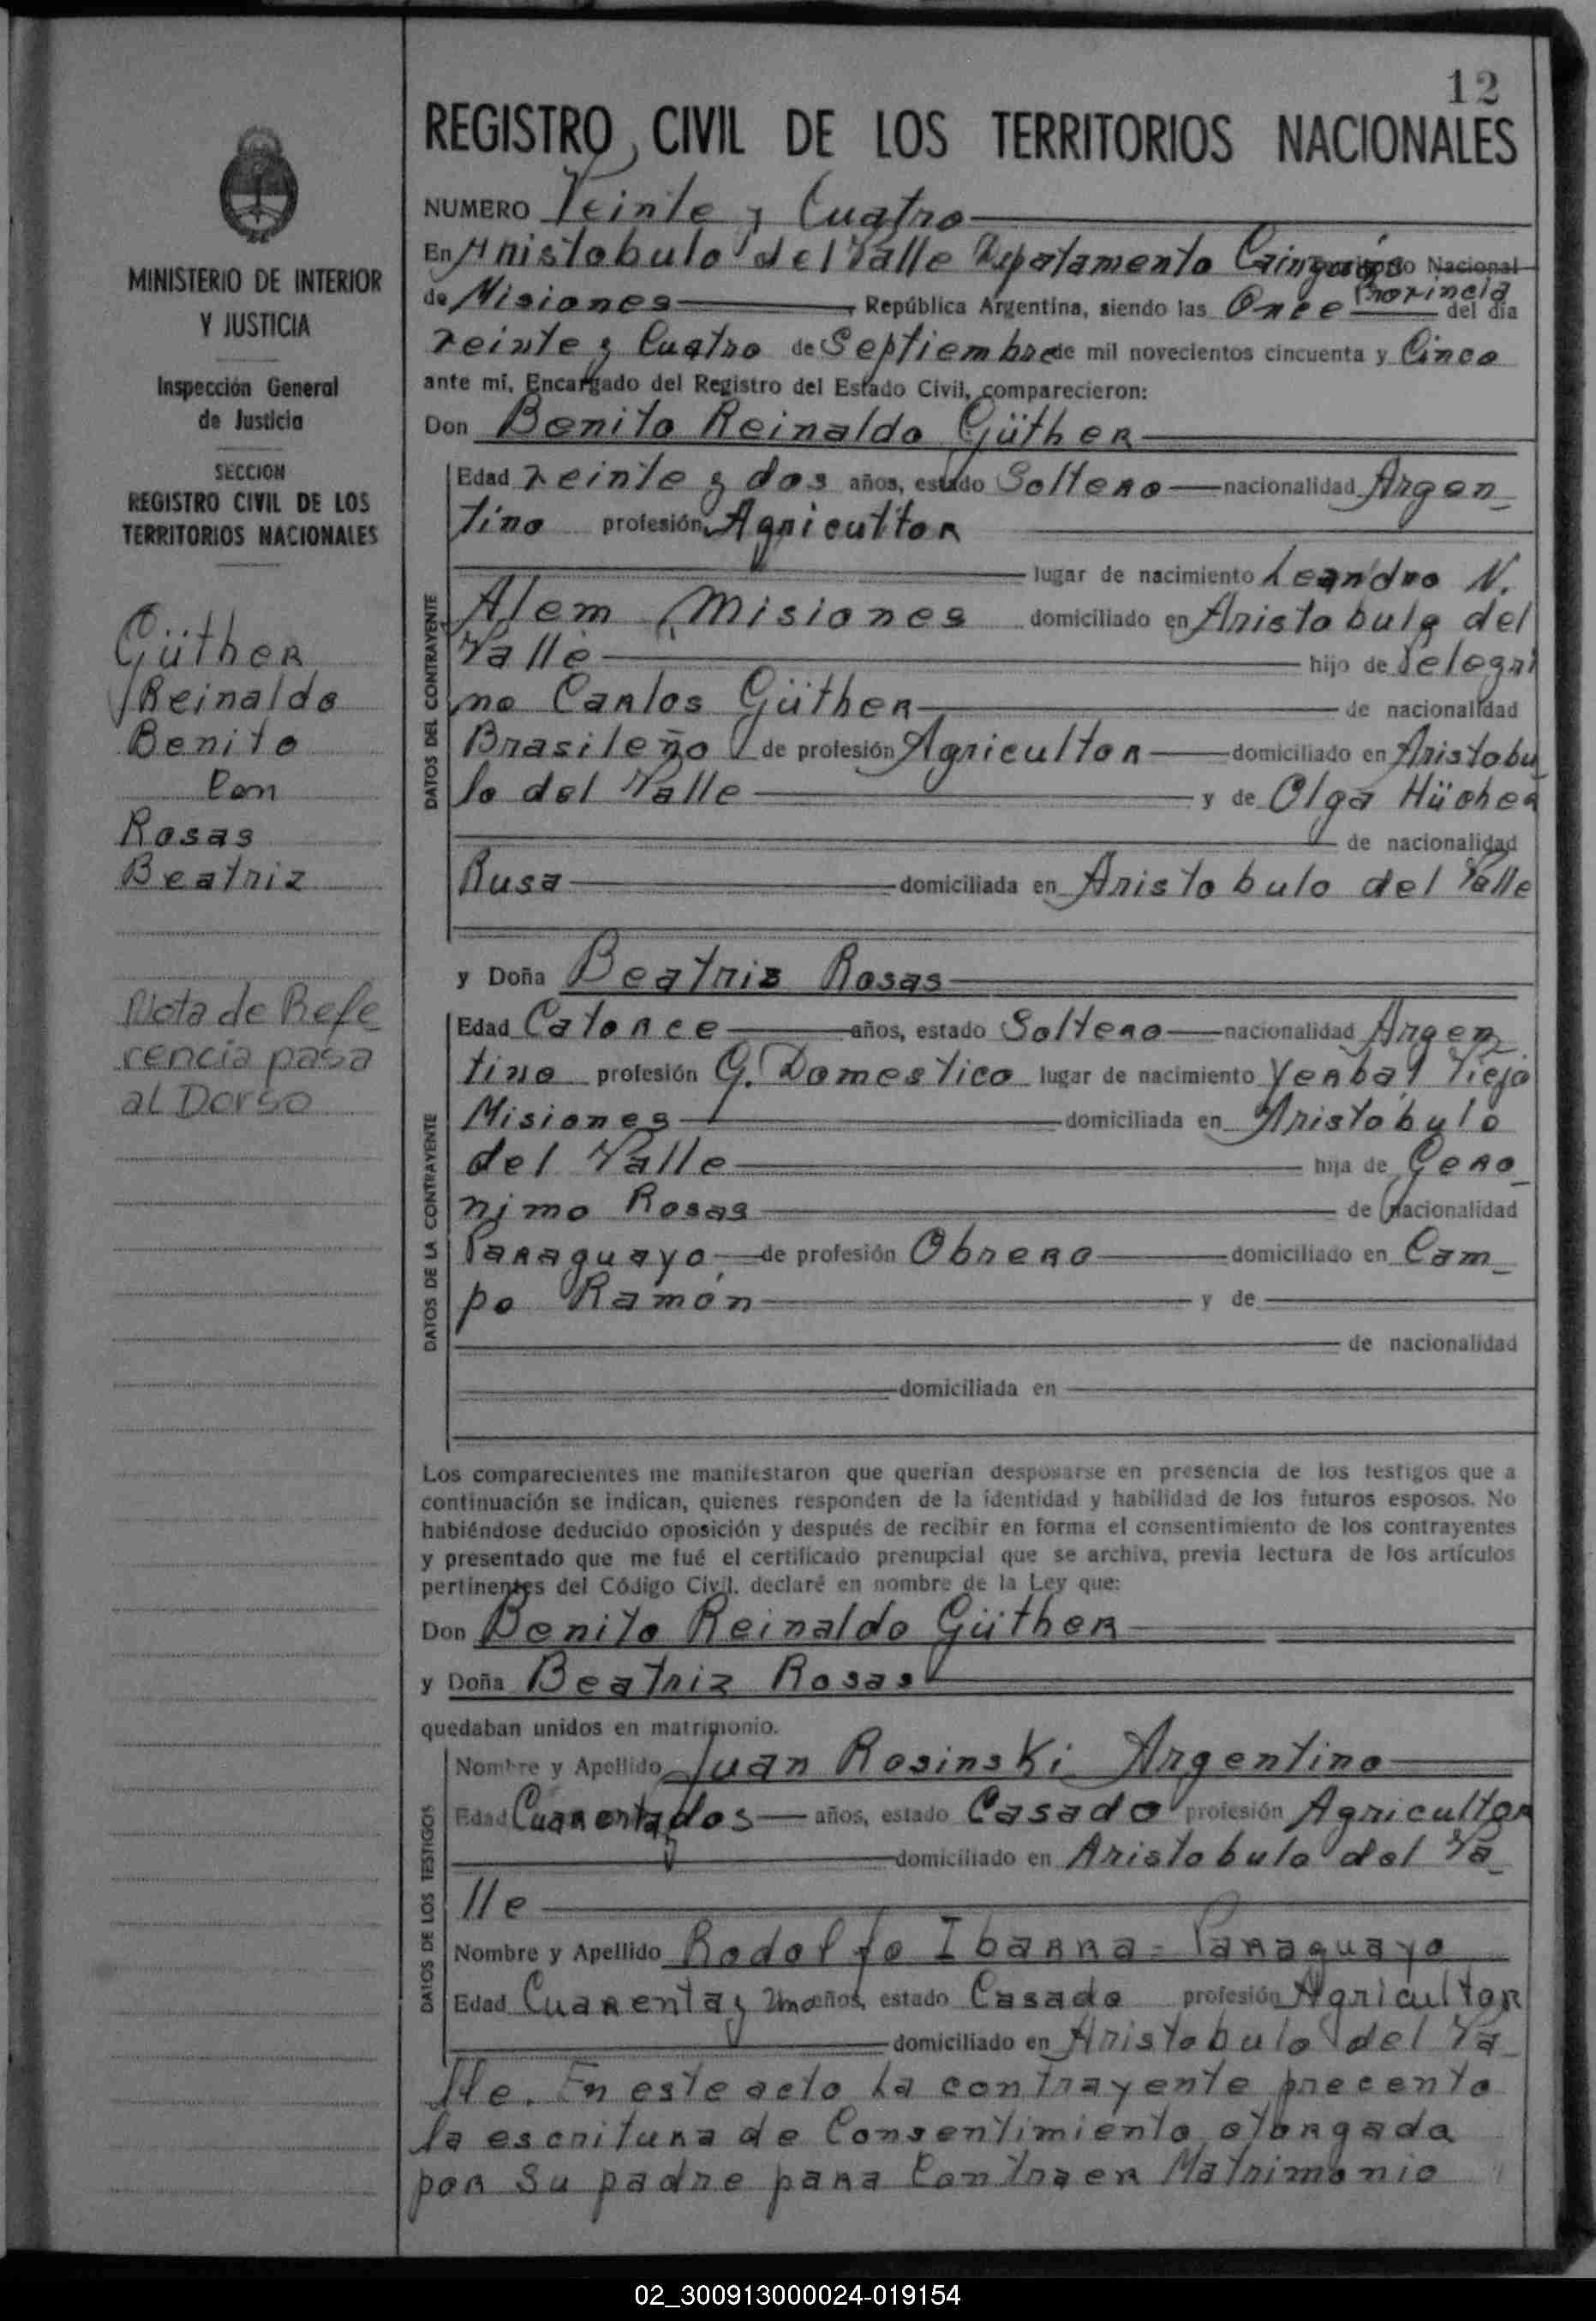 12
REGISTRO CIVIL DE LOS TERRITORIOS NACIONALES
MINISTERIO DE INTERIOR
Y JUSTICIA
Inspección General
de Justicia
SECCION
REGISTRO CIVIL DE LOS
TERRITORIOS NACIONALES
Güther
Reinaldo
Benito
Con
Rosas
Beatriz
Nota de Refe
rencia pasa
al Dorso
NUMERO Veinte y Cuatro
En Aristobulo del Valle Depatamento Nacional
Provincia
de Misiones República Argentina, siendo las Once del día
veinte y Cuatro de Septiembre de mil novecientos cincuenta y Cinco
ante mí, Encargado del Registro del Estado Civil, comparecieron:
Don Benito Reinaldo Güther
DATOS DEL CONTRAYENTE
Edad veinte y dos años, estado Soltero nacionalidad Argen_
tino profesión Agricultor
lugar de nacimiento Leandro N.
Alem Misiones domiciliado en Aristobulo del
Valle hijo de Pelegri
no Carlos Güther de nacionalidad
Brasileño de profesión Agricultor domiciliado en Aristobu_
lo del Valle y de Olga
de nacionalidad
Rusa domiciliada en Aristobulo del Valle
y Doña Beatriz Rosas
DATOS DE LA CONTRAYENTE
Edad Catorce años, estado Soltera nacionalidad Argen_
tino profesión Q. Domestico lugar de nacimiento Yerbal Viejo
Misiones domiciliada en Aristobulo
del Valle hija de Gero_
nimo Rosas de nacionalidad
Paraguayo de profesión Obrero domiciliado en Cam_
po Ramón y de
de nacionalidad
domiciliada en
Los comparecientes me manifestaron que querían desposarse en presencia de los testigos que a
continuación se indican, quienes responden de la identidad y habilidad de los futuros esposos. No
habiéndose deducido oposición y después de recibir en forma el consentimiento de los contrayentes
y presentado que me fué el certificado prenupcial que se archiva, previa lectura de los artículos
pertinentes del Código Civil, declaré en nombre de la Ley que:
Don Benito Reinaldo Güther
y Doña Beatriz Rosas
quedaban unidos en matrimonio.
DATOS DE LOS TESTIGOS
Nombre y Apellido Juan Rosinski Argentino
Edad Cuarenta y dos años, estado Casado profesión Agricultor
domiciliado en Aristobulo del Va_
lle
Nombre y Apellido Rodolfo Ibarra - Paraguayo
Edad Cuarenta y uno años, estado Casado profesión Agricultor
domiciliado en Aristobulo del Va_
lle. En este acto la contrayente precento
la escritura de Consentimiento otorgada
por su padre para Contraer Matrimonio
02_300913000024-019154